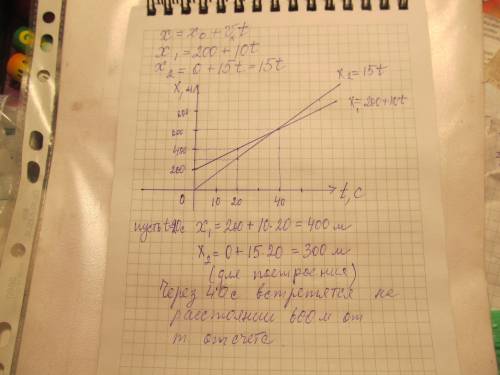 x = x₀ + vₓt
x₁ = 200 + 10t
x₂ = 0 + 15t = 15t
x, м
x₂ = 15t
x₁ = 200 + 10t
600
400
200
0 10 20 40 t, с
пусть t=20с x₁ = 200 + 10·20 = 400 м
x₂ = 0 + 15·20 = 300 м
(для построения)
Через 40с встретятся на
расстоянии 600 м от
т. отсчета